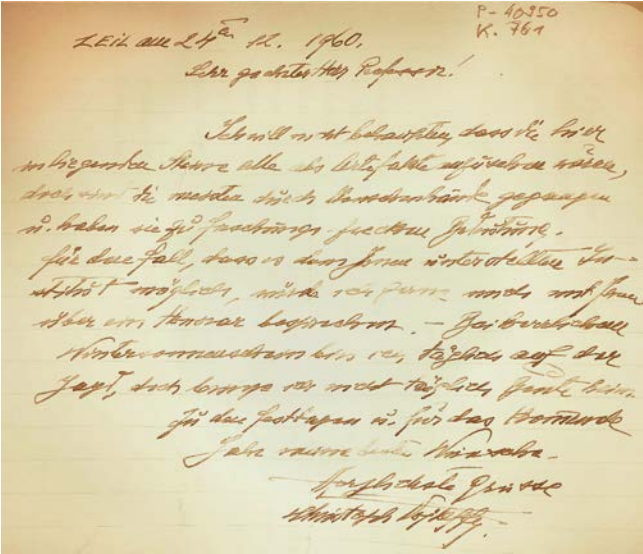 P-40350
K. 761
ZEIL am 24ten 12. 1960.
Sehr geehrter Herr Professor!
Ich will nicht behaupten, dass die hier
inliegenden Steine alle als Artefakte anzusehen wären,
doch sind die meisten durch Menschenhände gegangen
u. haben sie zu Forschungs-zwecken
für den Fall, dass es dem Ihnen unterstellten In-
stitut möglich, würde ich gerne mich mit Ihnen
über ein Honorar besprechen. – Bei herrlichem
Wintersonnenschein bin ich täglich auf der
Jagd, doch bringe ich nicht täglich Beute heim.
Zu den Festtagen u. für das kommende
Jahr meine besten Wünsche.
Herzlichste Grüsse
Christoph